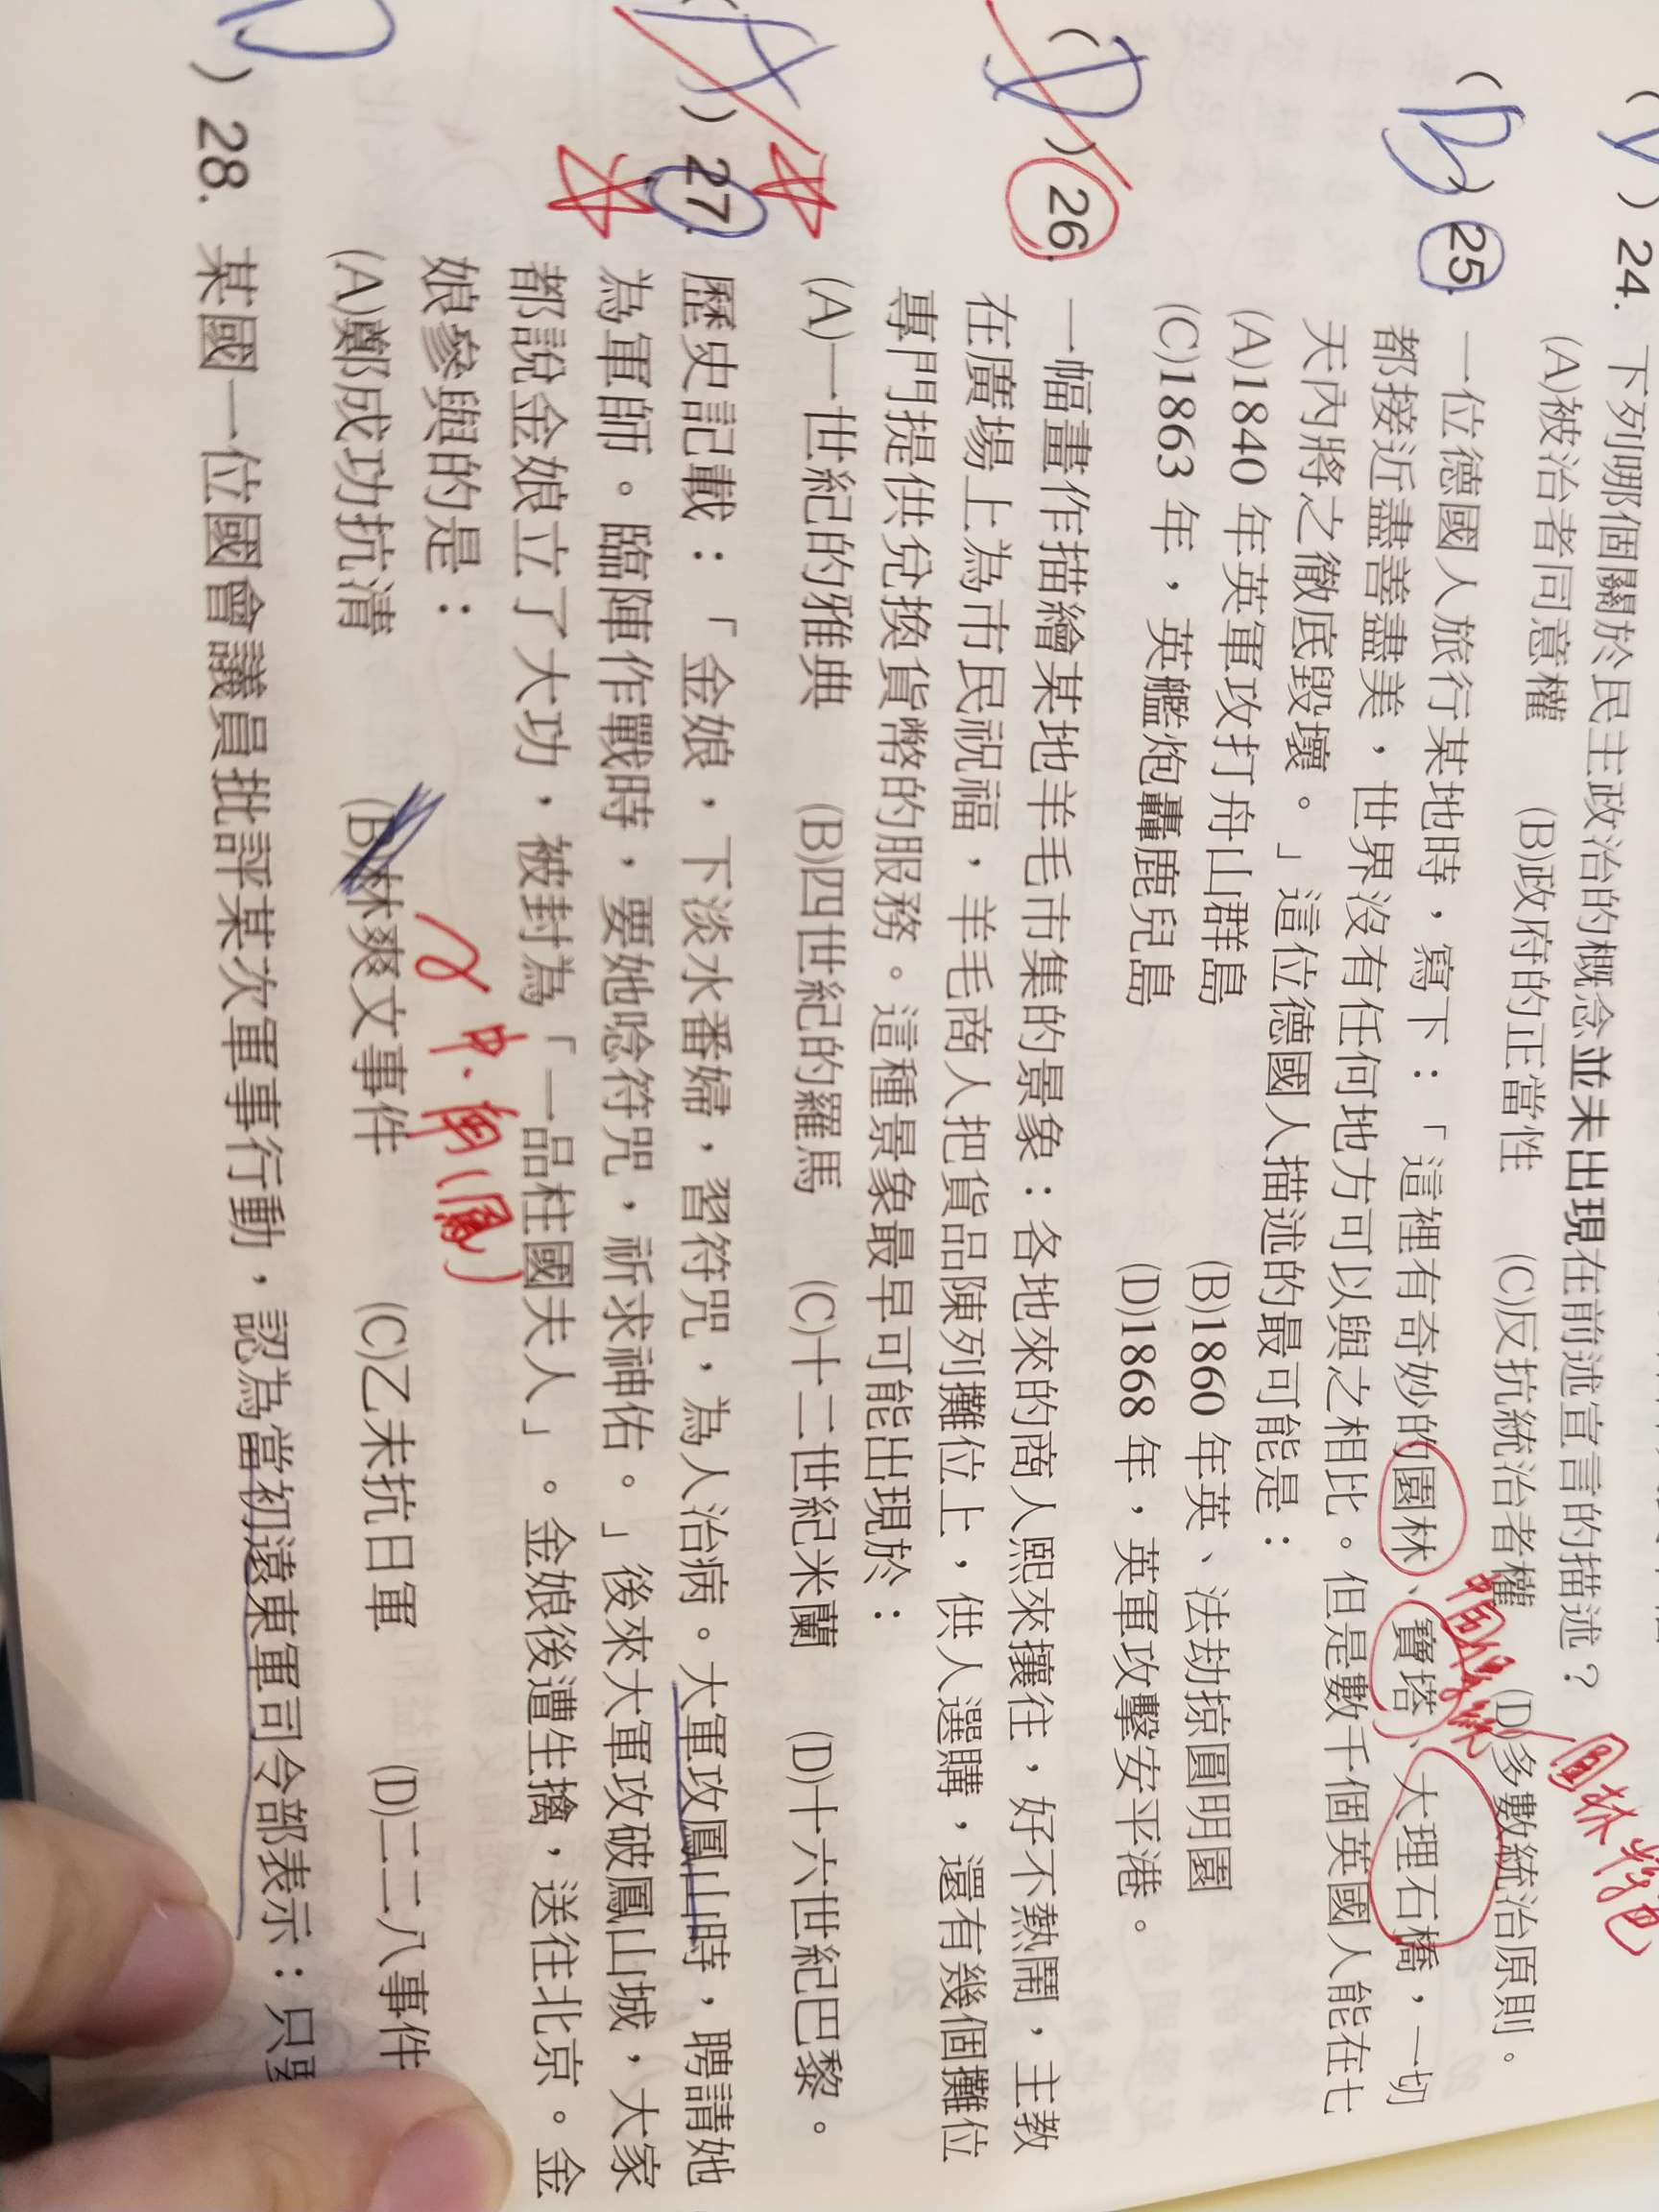 24. 下列哪個關於民主政治的概念並未出現在前述宣言的描述？
(A)被治者同意權 (B)政府的正當性 (C)反抗統治者權 (D)多數統治原則。
(B) 25. 一位德國人旅行某地時，寫下：「這裡有奇妙的園林、寶塔、大理石橋，一切
都接近盡善盡美，世界沒有任何地方可以與之相比。但是數千個英國人能在七
天內將之徹底毀壞。」這位德國人描述的最可能是：
(A)1840 年英軍攻打舟山群島 (B)1860 年英、法劫掠圓明園
(C)1863 年，英艦炮轟鹿兒島 (D)1868 年，英軍攻擊安平港。
(D) 26. 一幅畫作描繪某地羊毛市集的景象：各地來的商人熙來攘往，好不熱鬧，主教
在廣場上為市民祝福，羊毛商人把貨品陳列攤位上，供人選購，還有幾個攤位
專門提供兌換貨幣的服務。這種景象最早可能出現於：
(A)一世紀的雅典 (B)四世紀的羅馬 (C)十二世紀米蘭 (D)十六世紀巴黎。
(A) 27. 歷史記載：「金娘，下淡水番婦，習符咒，為人治病。大軍攻鳳山時，聘請她
為軍師。臨陣作戰時，要她唸符咒，祈求神佑。」後來大軍攻破鳳山城，大家
都說金娘立了大功，被封為「一品柱國夫人」。金娘後遭生擒，送往北京。金
娘參與的是：
中.南(鳳)
(A)鄭成功抗清 (B)林爽文事件 (C)乙未抗日軍 (D)二二八事件
) 28. 某國一位國會議員批評某次軍事行動，認為當初遠東軍司令部表示：只要